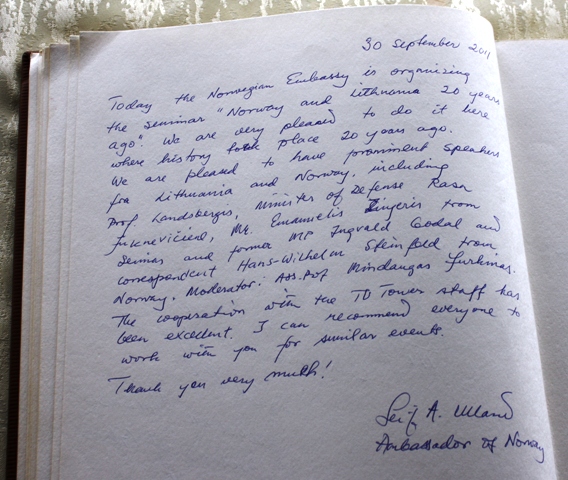 30 September 2011
Today the Norwegian Embassy is organizing
the seminar "Norway and Lithuania 20 years
ago". We are very pleased to do it here
where history took place 20 years ago.
We are pleased to have prominent speakers
fra Lithuania and Norway, including
Prof. Landsbergis, Minister of Defense Rasa
Juknevičienė, Mr. Emanuelis Zingeris from
Seimas and forma MP Ingvald Godal and
correspondent Hans-Wilhelm Steinfeld from
Norway. Moderator: Ass. Prof Mindaugas Jurkinas.
The cooperation with the TV Tower staff has
been excellent. I can recommend everyone to
work with you for similar events.
Thank you very much!
Leif A. Ulland
Ambassador of Norway